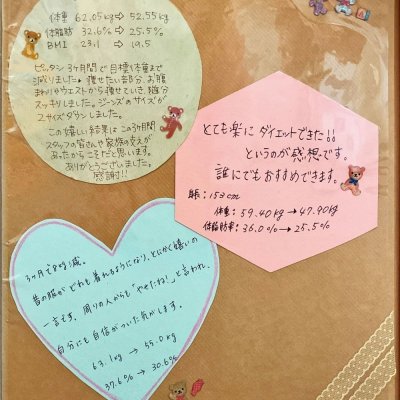 体重 62.05kg⇨52.55kg
体脂肪 32.6%⇨25.5%
BMI 23.1 → 19.5
ピッタン3ヶ月間で目標体重まで
減りました。痩せたい部分、お腹
まわりやウエストから痩せていき、随分
スッキリしました。ジーンズのサイズが
2サイズダウンしました。
この嬉しい結果はこの3ヶ月間
スタッフの皆さんや家族の支えが
あったからこそだと思います。
ありがとうございました。
感謝!!
とても楽にダイエットできた!!
というのが感想です。
誰にでもおすすめできます。
身長:153cm
体重:59.40kg→47.90kg
体脂肪率:36.0%→25.5%
3ヶ月で8kg減。
昔の服がどれも着れるようになり、とにかく嬉しいの
一言です、周りの人からも「やせたね!」と言われ、
自分にも自信がついた気がします。
63.1kg → 55.0kg
37.6% → 30.6%